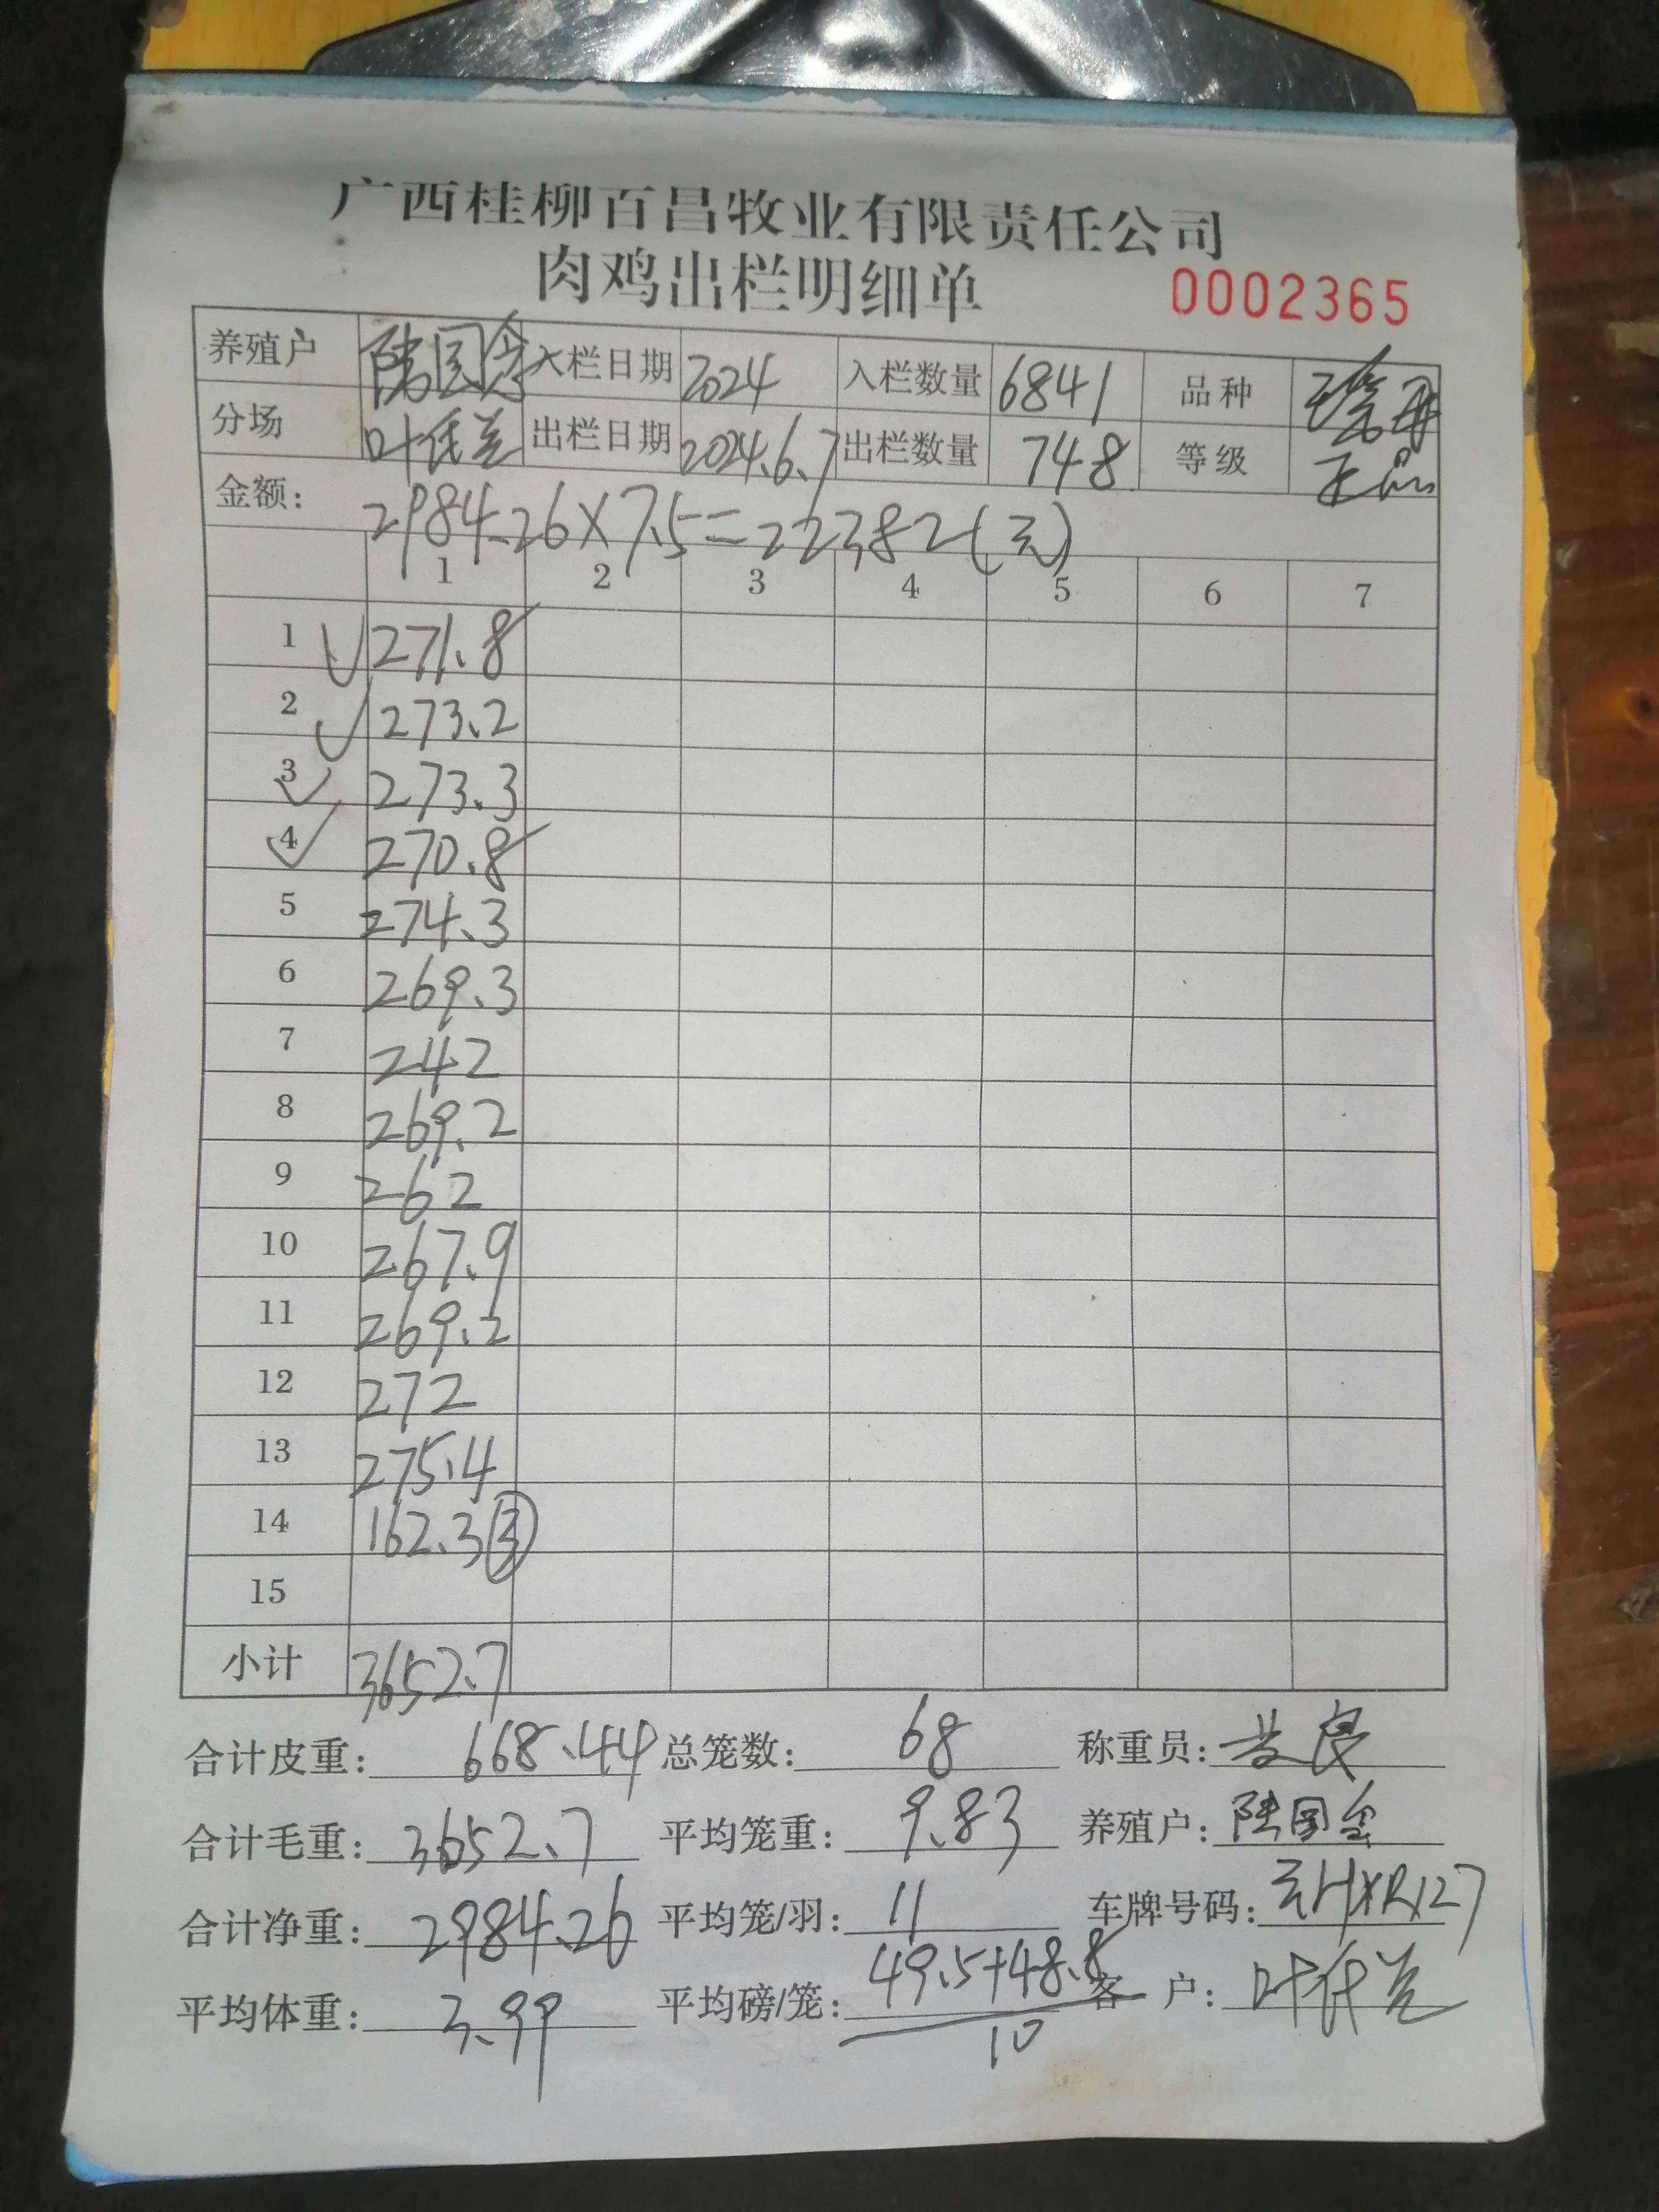 广西桂柳百昌牧业有限责任公司
肉鸡出栏明细单 0002365
养殖户 陆国 入栏日期 2024 入栏数量 6841 品种
分场 叶 兰 出栏日期 2024.6.7 出栏数量 748 等级 正品
金额: 2984.26×7.5=22382(元)
1 2 3 4 5 6 7
1 271.8
2 273.2
3 273.3
4 270.8
5 274.3
6 269.3
7 242
8 269.2
9 262
10 267.9
11 269.2
12 272
13 275.4
14 162.3③
15
小计 3652.7
合计皮重: 668.44 总笼数: 68 称重员: 良
合计毛重: 3652.7 平均笼重: 9.83 养殖户: 陆国
合计净重: 2984.26 平均笼/羽: 11 车牌号码: 云HXR127
平均体重: 3.99 平均磅/笼: 49.5+48.8 客户: 叶 兰
10